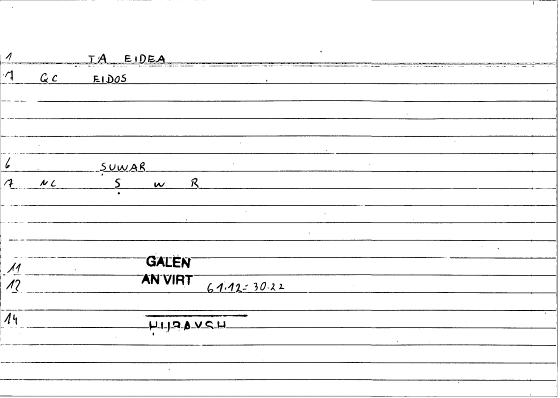 1 TA EIDEA
7 GC EIDOS
6 ṢUWAR
7 NC Ṣ W R
11 GALEN
12 AN VIRT 61.12=30.22
14